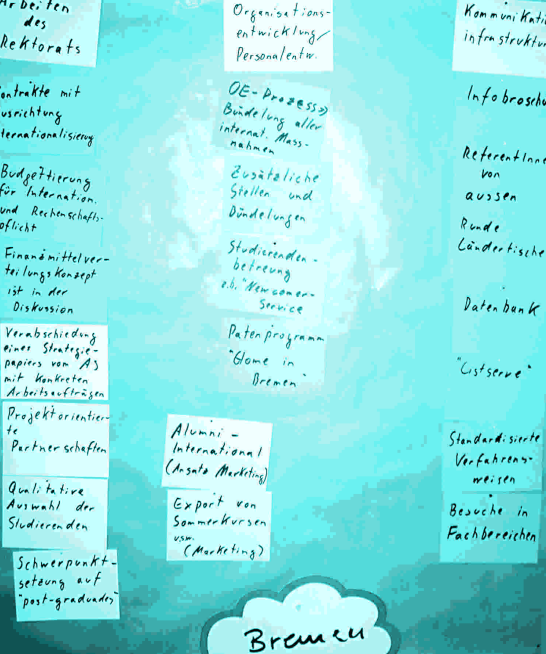 Arbeiten
des
Rektorats
ontrakte mit
usrichtung
ternationalisierung
Budgettierung
für Internation.
und Rechenschafts-
pflicht
Finanzmittelver-
teilungskonzept
ist in der
Diskussion
Verabschiedung
eines Strategie-
papiers vom AS
mit konkreten
Arbeitsaufträgen
Projektorientier-
te
Partnerschaften
Qualitative
Auswahl der
Studierenden
Schwerpunkt-
setzung auf
"post-graduades"
Organisations-
entwicklung/
Personalentw.
OE-Prozess =>
Bündelung aller
internat. Mass-
nahmen
Zusätzliche
Stellen und
Bündelungen
Studierenden-
betreuung
z.b. "Newcomer-
Service
Patenprogramm
"Home in
Bremen"
Alumni-
International
(Ansatz Marketing)
Export von
Sommerkursen
usw.
(Marketing)
Kommunikati
infrastruktu
Infobroschü
ReferentInne
von
aussen
Runde
Ländertische
Datenbank
"Listserve"
Standardisierte
Verfahrens-
weisen
Besuche in
Fachbereichen
Bremen